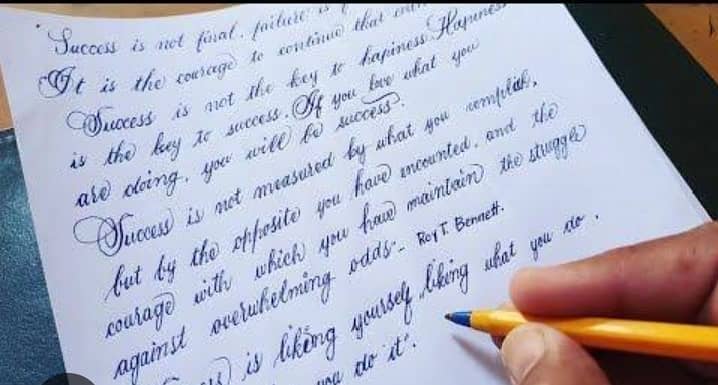 Success is not final, failure is
It is the courage to continue that
Success is not the key to hapiness. Hapiness
is the key to success. If you love what you
are doing, you will be success".
Success is not measured by what you complish,
but by the opposite you have encounted, and the
courage with which you have maintain the struggle
against overwhelming odds". Roy T. Bennett.
is liking yourself, liking what you do,
you do it".